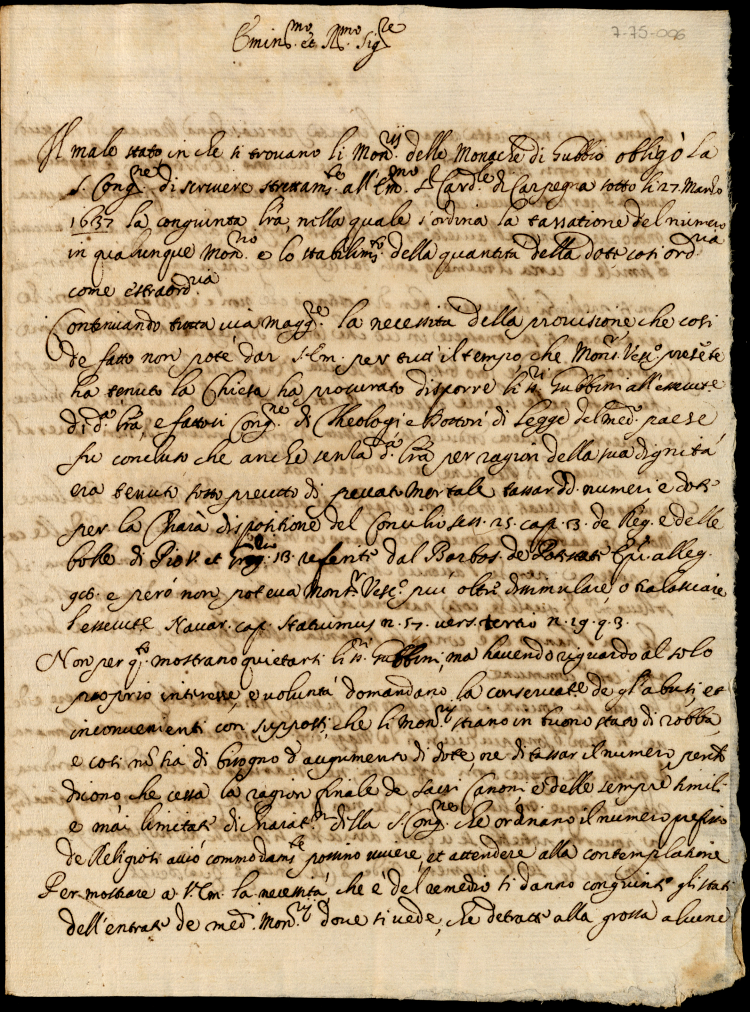 7-75-096
Emin.mo et R.mo Sig.re
Il male stato in che si trovano li Mon.rij delle Monache di Gubbio obligò la
S. Cong.ne di scrivere strettam.te all'Em.mo S.r Card.le di Carpegna sotto li 27. Marzo
1637 la congiunta lra, nella quale s'ordina la tassatione del numero
in qualunque Mon.rio e lo stabilim.to della quantità della dote così ord.ria
come estraord.ria
Continuando tutta via magg.re la necessità della provisione che così
de fatto non poté dar S. Em. per tutt'il tempo che Mons.r Vesc.o presẽte
ha tenuto la Chiesa ha procurato disporre li ss.ri Gubbini all'essecut.e
di d.a lra, e fattosi Cong.ne di Theologi e Dottori di Legge del med.o paese
fu concluso che anche senza d.a lra per ragion della sua dignità
era tenuto sotto precetto di peccato mortale tassar dd. numeri e doti
per la chiara dispositione del Concilio sess. 25. cap. 3. de Reg. e delle
bolle di Pio V. et Greg.rio 13. referite dal Barbos. de Potestate Epi. alleg.
e però non poteva Mons.r Vesc.o più oltre dissimulare, o tralasciare
l'essecut.e Navar. cap. statuimus n. 57. vers. tertio n. 19. q. 3.
Non per q.to mostrano quietarsi li ss.ri Gubbini, ma havendo riguardo al solo
proprio interesse, e voluntà domandano la conservat.e de gl'abusi, et
inconvenienti con supposti, che li Mon.rij stiano in buono stato di robba,
e così nõ sia di bisogno d'augumento di dote, ne di tassar il numero, perche
dicono, che cessa la ragion finale de Sacri Canoni, e delle sempre simili
e mai limitate dichiarat.ni della S. Cong.ne che ordinano il numero prefisso
de Religiosi acciò commodam.te possino vivere, et attendere alla contemplatione
Per mostrare a V. Em. la necessità che è del remedio si danno congiunti gli stati
dell'entrate de med.i Mon.rij dove si vede, che detratte alla grossa alcune